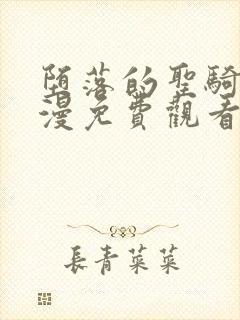 堕落的聖騎
漫免費觀看
長青菜菜